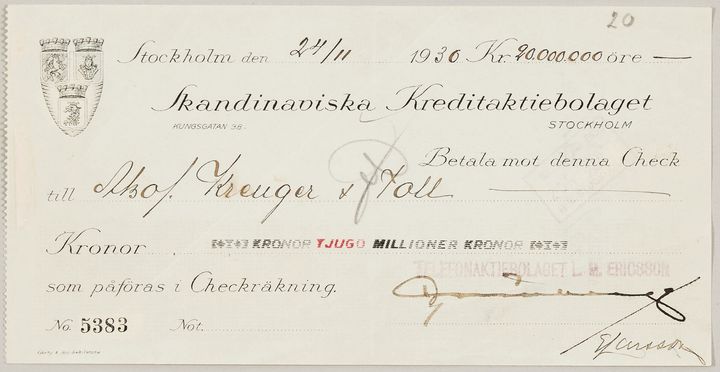 20
Stockholm den 24/11 1930 Kr. 20.000.000 öre —
Skandinaviska Kreditaktiebolaget
KUNGSGATAN 38. STOCKHOLM
Betala mot denna Check
till Akof. Kreuger & Toll
Kronor KRONOR TJUGO MILLIONER KRONOR
TELEFONAKTIEBOLAGET L. M. ERICSSON
som påföras i Checkräkning.
No. 5383 Not.